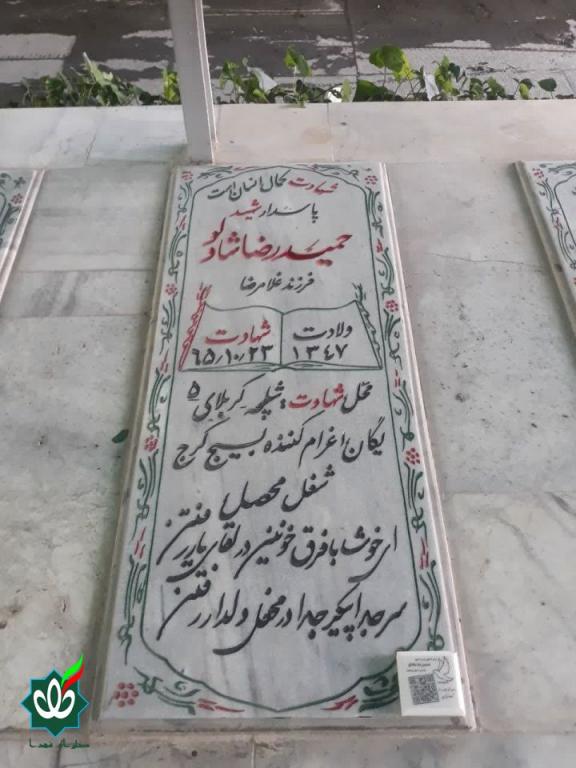 شهادت کمال انسان است
پاسدار شهید
حمیدرضا شادلو
فرزند غلامرضا
ولادت
۱۳۴۷
شهادت
۶۵/۱۰/۲۳
محل شهادت: شلمچه کربلای ۵
یگان اعزام کننده بسیج کرج
شغل محصل
ای خوشا با فرق خونین در لقای یار رفتن
سر جدا پیکر جدا در محفل دلدار رفتن